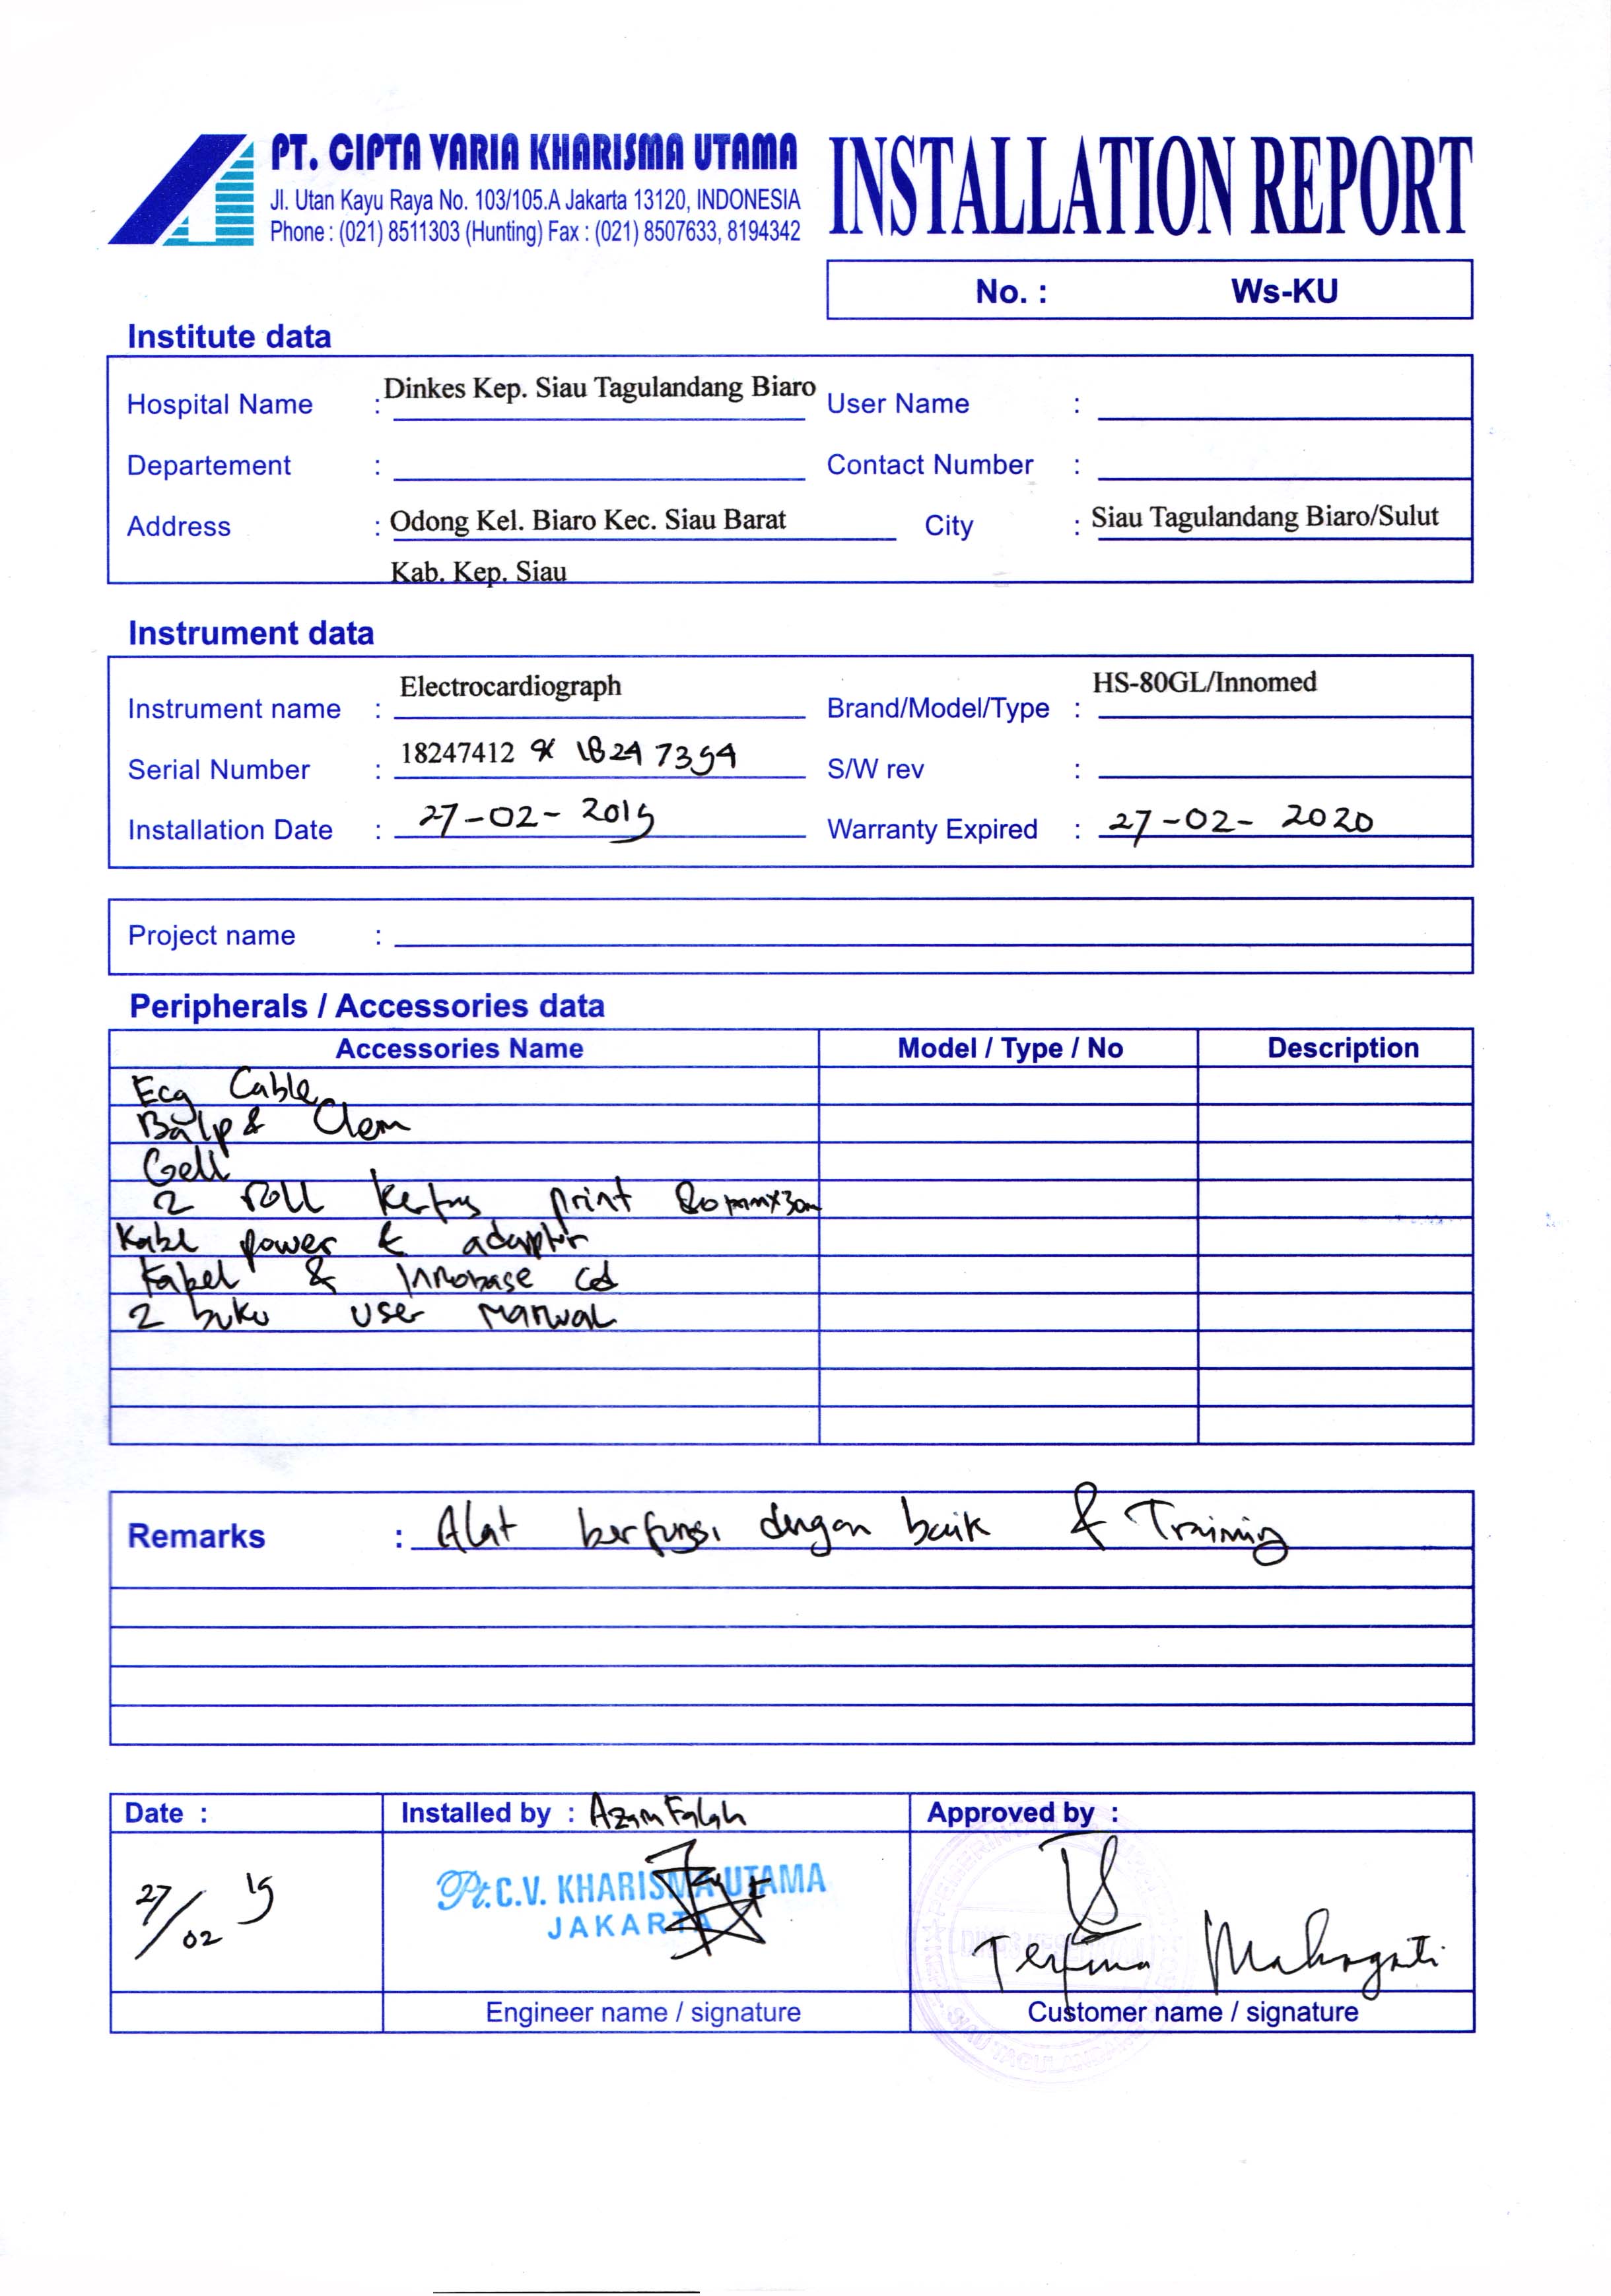 PT. CIPTA VARIA KHARISMA UTAMA
Jl. Utan Kayu Raya No. 103/105.A Jakarta 13120, INDONESIA
Phone : (021) 8511303 (Hunting) Fax : (021) 8507633, 8194342
INSTALLATION REPORT
No. : Ws-KU
Institute data
Hospital Name : Dinkes Kep. Siau Tagulandang Biaro User Name :
Departement : Contact Number :
Address : Odong Kel. Biaro Kec. Siau Barat City : Siau Tagulandang Biaro/Sulut
Kab. Kep. Siau
Instrument data
Instrument name : Electrocardiograph Brand/Model/Type : HS-80GL/Innomed
Serial Number : 18247412 & 18247394 S/W rev :
Installation Date : 27-02-2019 Warranty Expired : 27-02-2020
Project name :
Peripherals / Accessories data
Accessories Name Model / Type / No Description
Ecg Cable
Balp & Clem
Gell
2 roll kertas print 80mmx30m
Kabl power & adaptor
Kabel & Innobase cd
2 buku user manual
Remarks : Alat berfungsi dengan baik & Training
Date : Installed by : Azam Falah Approved by :
27/02 19
Pt. C.V. KHARISMA UTAMA
JAKARTA
Mahagati
Engineer name / signature Customer name / signature